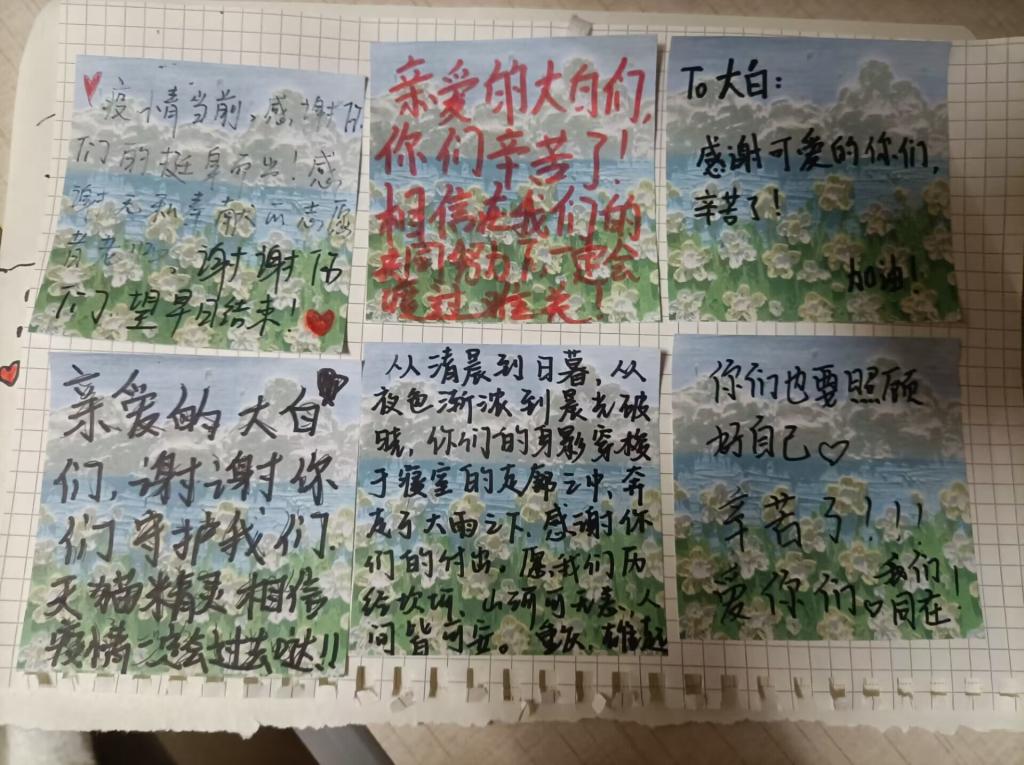 疫情当前,感谢你
们的挺身而出!感
谢无私奉献的志愿
者老师、谢谢你
们了望早日结束!
亲爱的大白们,
你们辛苦了!
相信在我们的
共同努力下,一定会
度过难关!
To 大白:
感谢可爱的你们,
辛苦了!
加油!
亲爱的大白
们,谢谢你
们守护我们.
天猫精灵相信
疫情一定会过去哒!!
从清晨到日暮,从
夜色渐浓到晨光破
晓,你们的身影穿梭
于寝室的走廊之中、奔
走于大雨之下.感谢你
们的付出。愿我们历
经坎坷、山河可无恙、人
间皆可安。重庆,雄起
你们也要照顾
好自己♡
辛苦了!!!
爱你们♡
我们
同在!